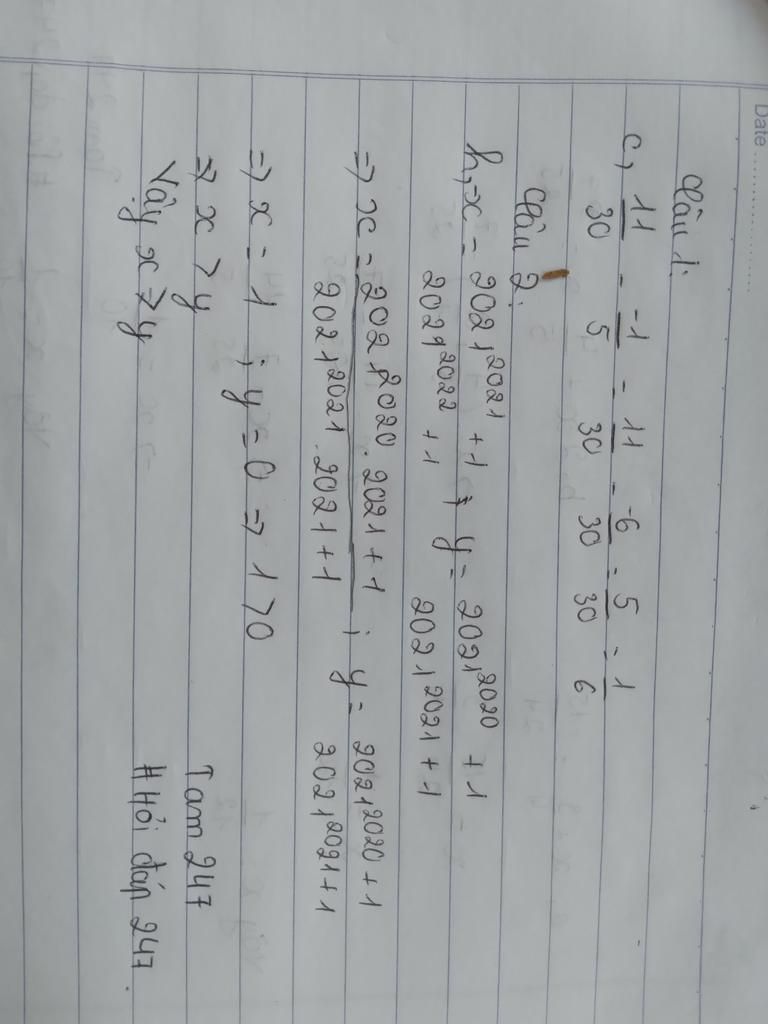 Date
Câu 1:
c, 11/30 - -1/5 = 11/30 - -6/30 = 5/30 = 1/6
Câu 2:
h, x = 2021^2021 + 1 / 2021^2022 + 1 ; y = 2021^2020 + 1 / 2021^2021 + 1
=> x = 2021^2020 . 2021 + 1 / 2021^2021 . 2021 + 1 ; y = 2021^2020 + 1 / 2021^2021 + 1
=> x = 1 ; y = 0 => 1 > 0
=> x > y
Vậy x > y
Tam 247
# Hỏi đáp 247.